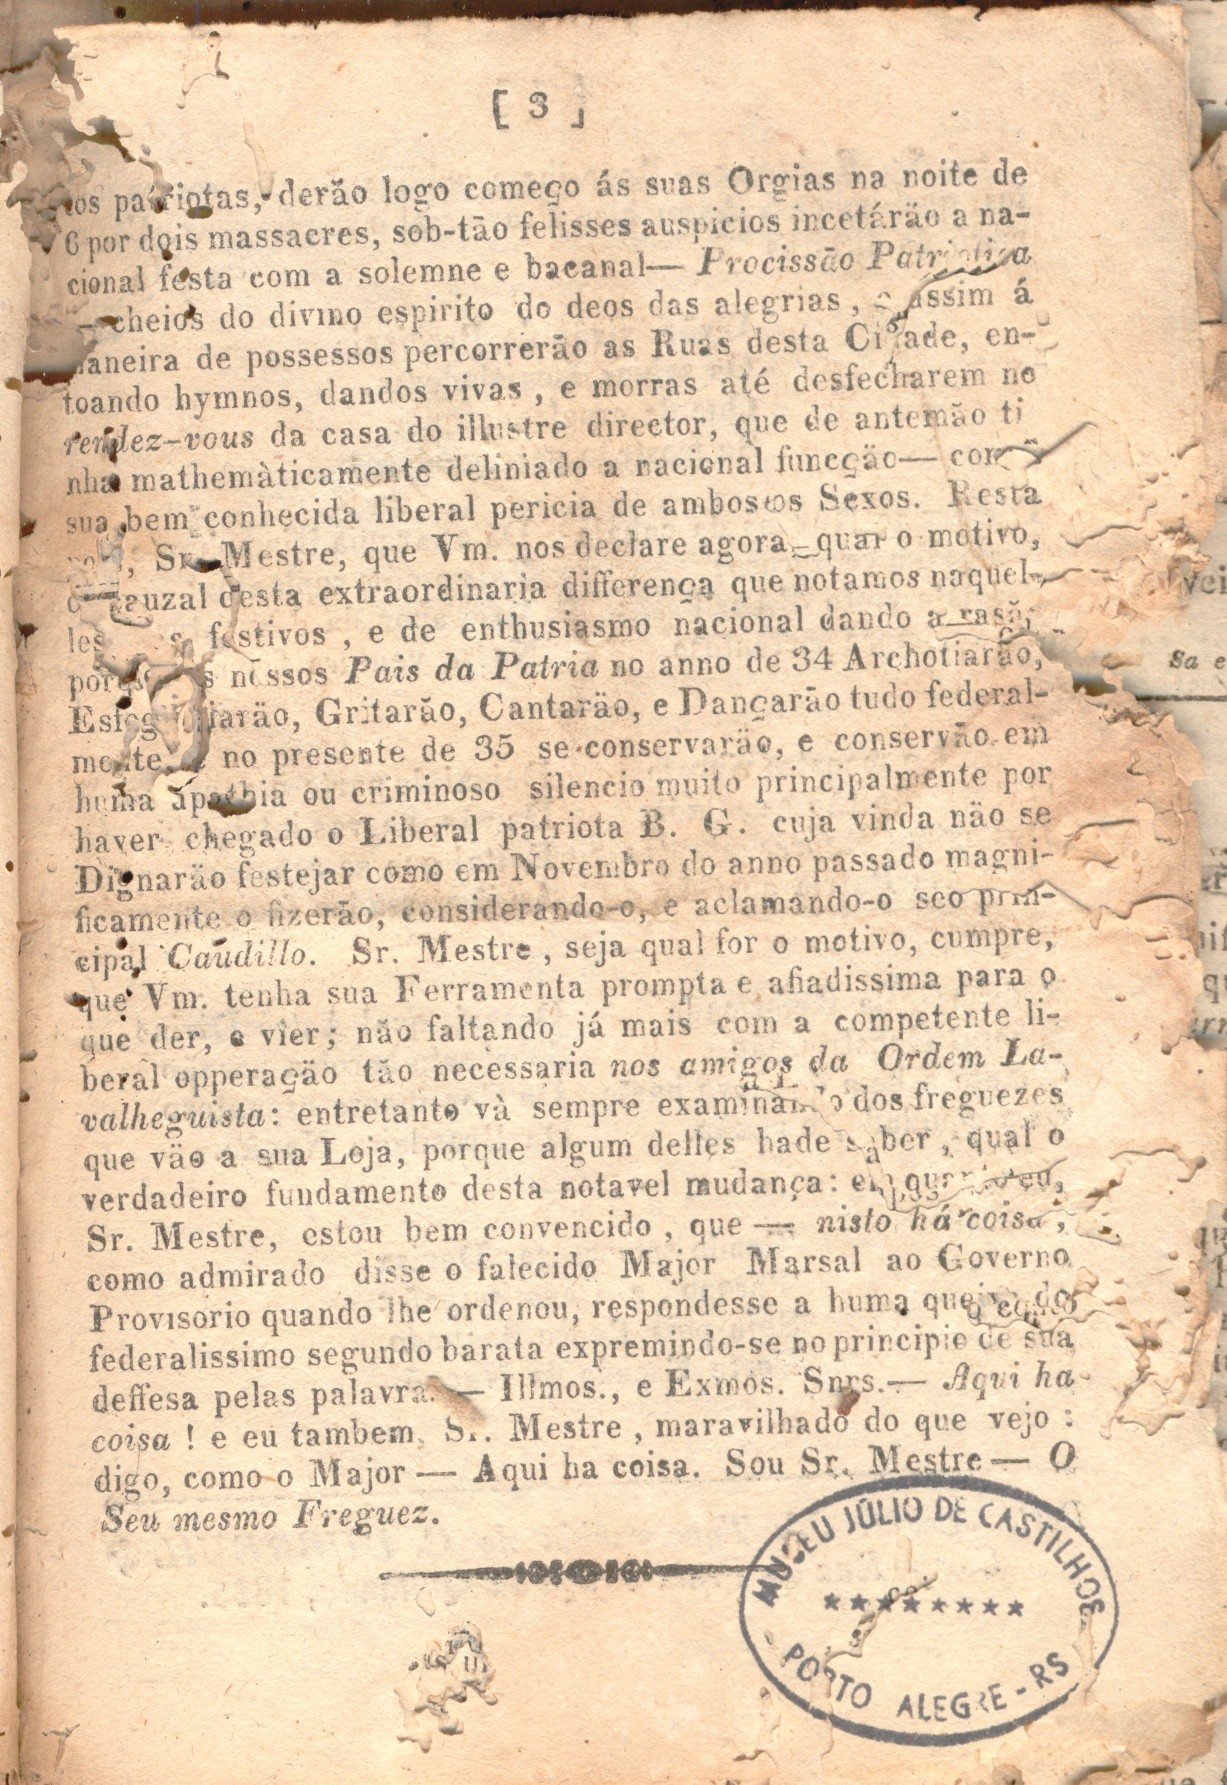 [ 3 ]
patriotas, derão logo começo ás suas Orgias na noite de
6 por dois massacres, sob-tão felisses auspicios incetárão a na-
cional festa com a solemne e bacanal— Procissão Patriotica
— cheios do divino espirito do deos das alegrias, assim á
maneira de possessos percorrerão as Ruas desta Cidade, en-
toando hymnos, dandos vivas, e morras até desfecharem no
rendez-vous da casa do illustre director, que de antemão ti
nha mathemàticamente deliniado a nacional funcção— com
sua bem conhecida liberal pericia de ambos os Sexos. Resta
, Sr. Mestre, que Vm. nos declare agora, qual o motivo,
cauzal desta extraordinaria differença que notamos naquel-
les festivos, e de enthusiasmo nacional dando a rasão
nossos Pais da Patria no anno de 34 Archotiarão,
Gritarão, Cantarão, e Dançarão tudo federal-
mente, e no presente de 35 se conservarão, e conservão em
huma apathia ou criminoso silencio muito principalmente por
haver chegado o Liberal patriota B. G. cuja vinda não se
Dignarão festejar como em Novembro do anno passado magni-
ficamente o fizerão, considerando-o, e aclamando-o seo prin-
cipal Caudillo. Sr. Mestre, seja qual for o motivo, cumpre,
que Vm. tenha sua Ferramenta prompta e afiadissima para o
que der, e vier; não faltando já mais com a competente li-
beral opperação tão necessaria nos amigos da Ordem La-
valheguista: entretanto và sempre examinando dos freguezes
que vão a sua Loja, porque algum delles hade saber, qual o
verdadeiro fundamento desta notavel mudança: em quanto eu,
Sr. Mestre, estou bem convencido, que — nisto há coisa,
como admirado disse o falecido Major Marsal ao Governo
Provisorio quando lhe ordenou, respondesse a huma queixa do
federalissimo segundo barata expremindo-se no principio de sua
deffesa pelas palavra. — Illmos., e Exmos. Snrs.— Aqui ha
coisa ! e eu tambem, Sr. Mestre, maravilhado do que vejo :
digo, como o Major — Aqui ha coisa. Sou Sr. Mestre — O
Seu mesmo Freguez.
MUSEU JÚLIO DE CASTILHOS
********
PORTO ALEGRE - RS